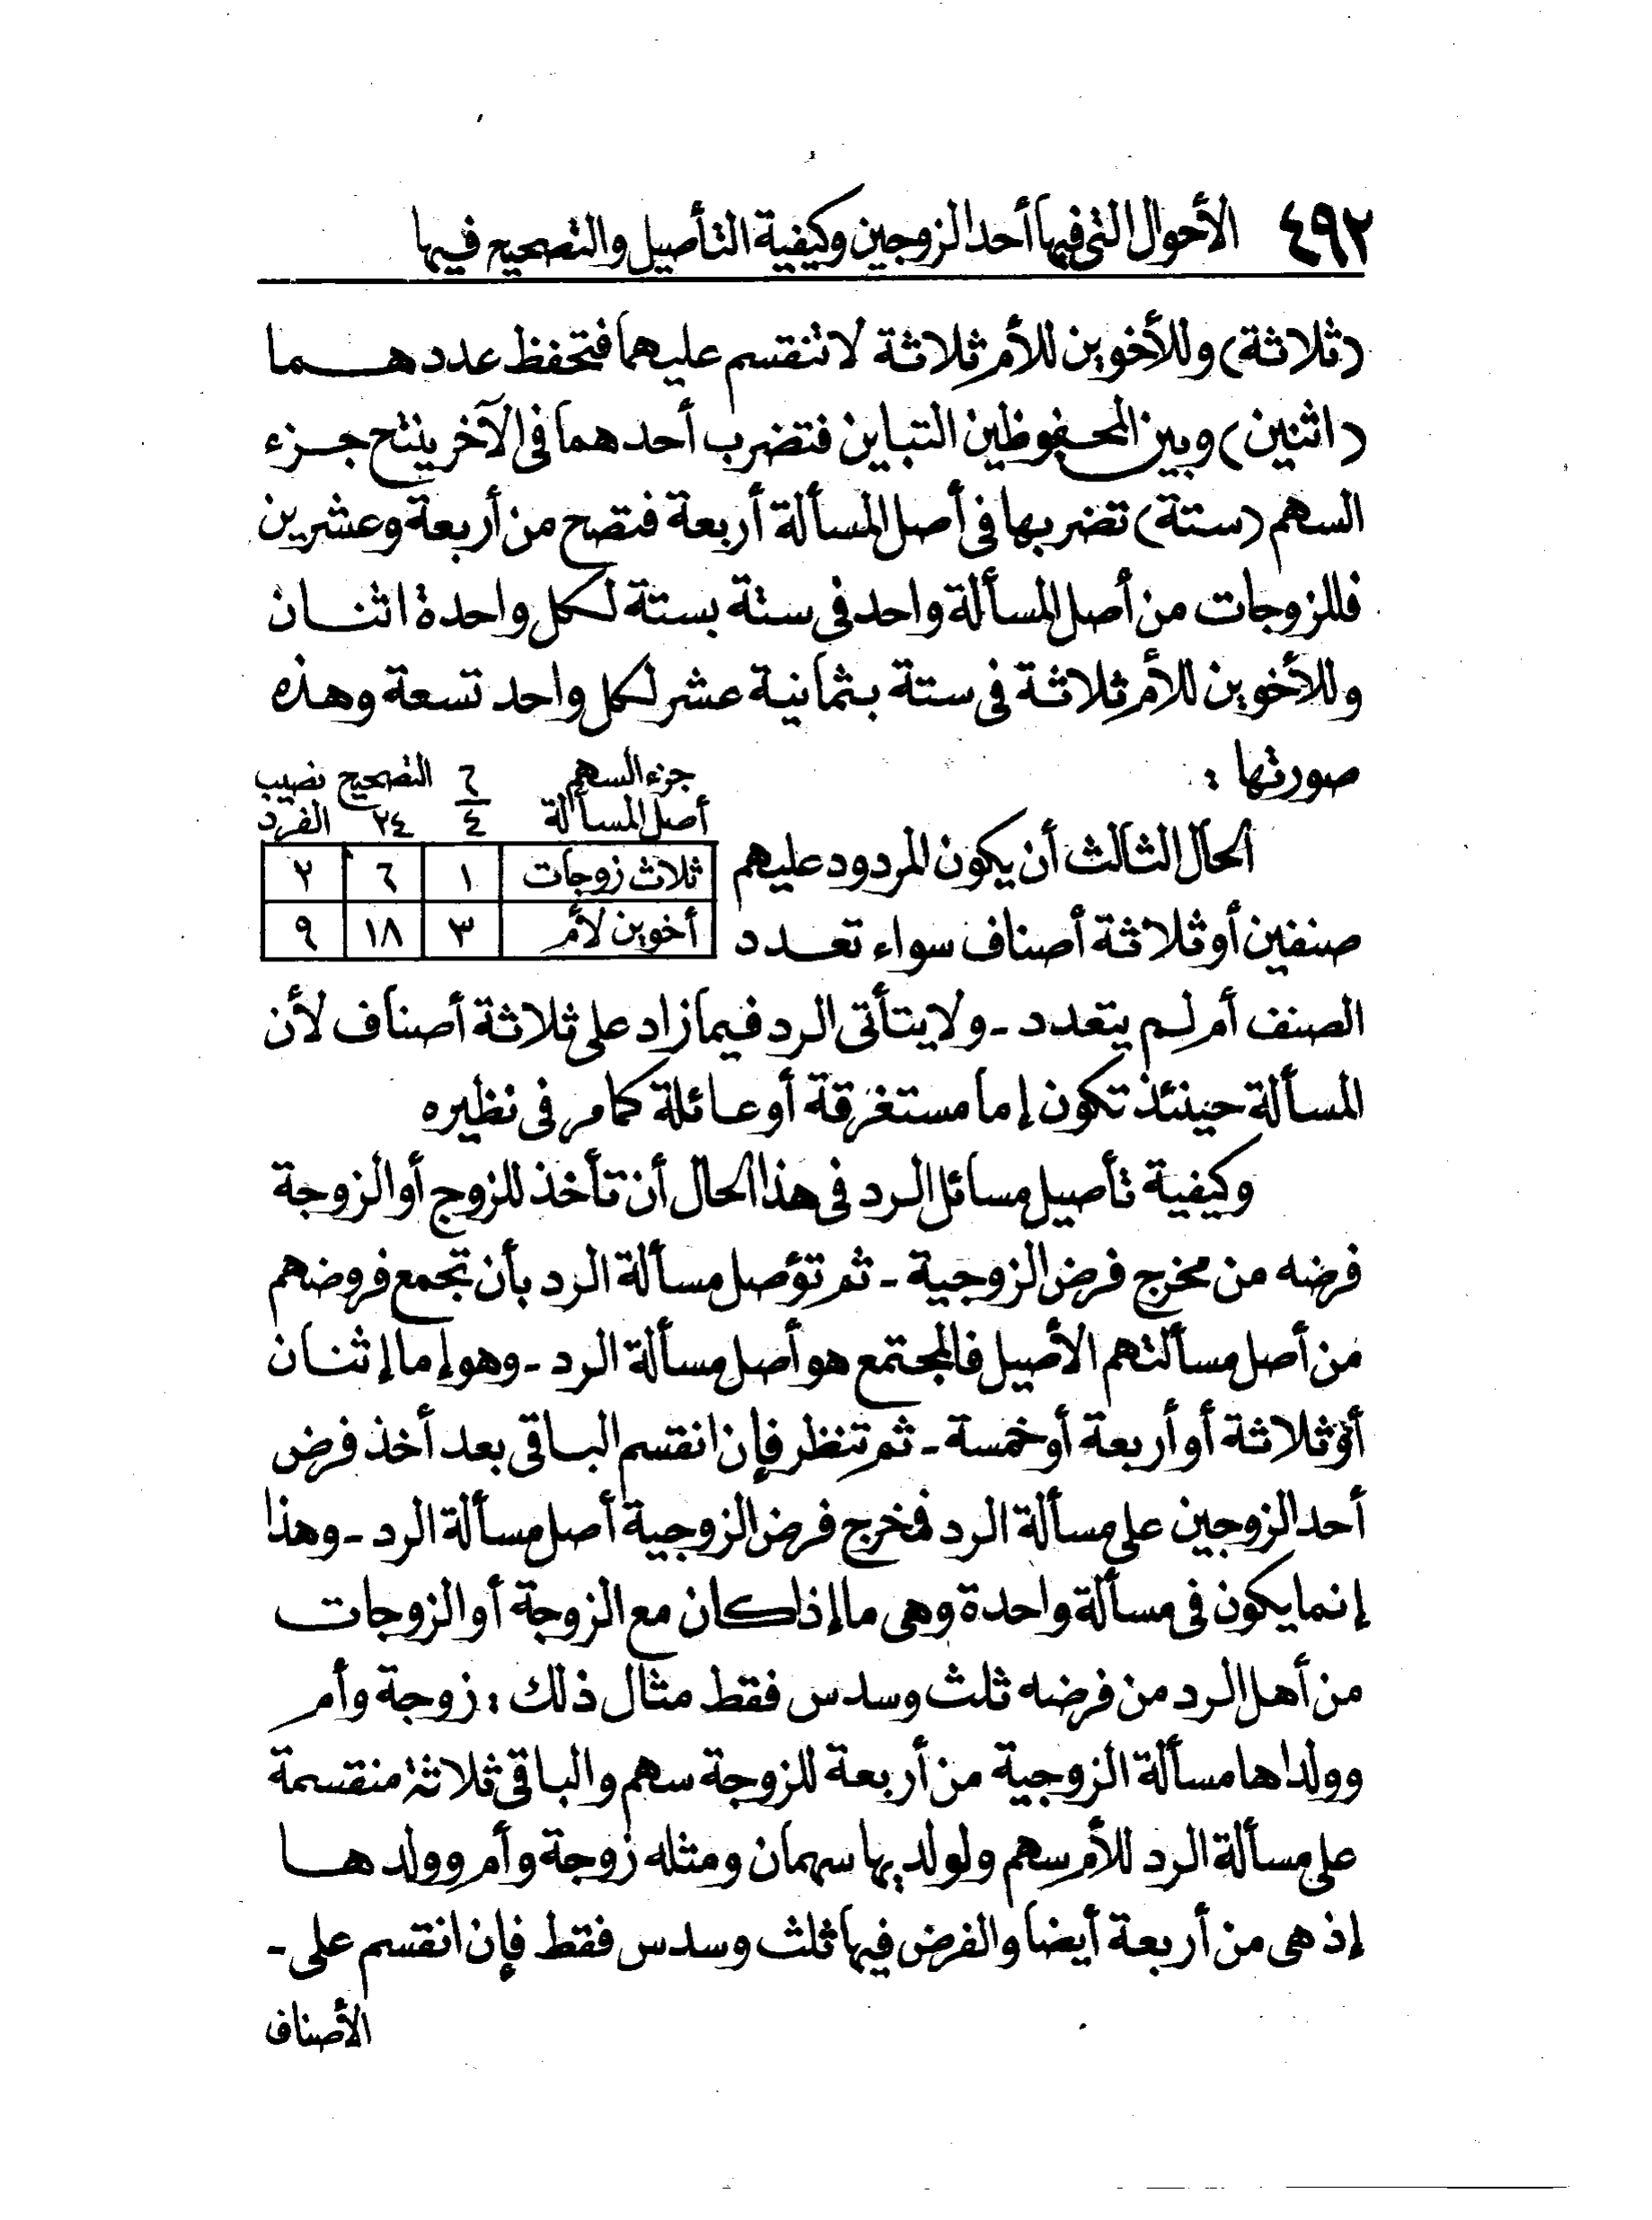 ٤٩٢ الأحوال التى فيها أحد الزوجين وكيفية التأصيل والتصحيح فيها
(ثلاثة) وللأخوين للأم ثلاثة لا تنقسم عليهما فتحفظ عددهما
(اثنين) وبين المحفوظين التباين فتضرب أحدهما فى الآخر ينتج جزء
السهم (ستة) تضربها فى أصل المسألة أربعة فتصح من أربعة وعشرين
فللزوجات من أصل المسألة واحد فى ستة بستة لكل واحدة اثنان
وللأخوين للأم ثلاثة فى ستة بثمانية عشر لكل واحد تسعة وهذه
صورتها :
جزء السهم ٦ التصحيح نصيب
أصل المسألة ٤ ٢٤ الفرد
ثلاث زوجات ١ ٦ ٢
أخوين لأم ٣ ١٨ ٩
الحال الثالث أن يكون المردود عليهم
صنفين أو ثلاثة أصناف سواء تعدد
الصنف أم لم يتعدد - ولا يتأتى الرد فيما زاد على ثلاثة أصناف لأن
المسألة حينئذ تكون إما مستغرقة أو عائلة كما مر فى نظيره
وكيفية تأصيل مسائل الرد فى هذا الحال أن تأخذ للزوج أو الزوجة
فرضه من مخرج فرض الزوجية - ثم تؤصل مسألة الرد بأن تجمع فروضهم
من أصل مسألتهم الأصيل فالمجتمع هو أصل مسألة الرد - وهو إما إثنان
أو ثلاثة أو أربعة أو خمسة - ثم تنظر فإن انقسم الباقى بعد أخذ فرض
أحد الزوجين على مسألة الرد فمخرج فرض الزوجية أصل مسألة الرد - وهذا
إنما يكون فى مسألة واحدة وهى ما إذا كان مع الزوجة أو الزوجات
من أهل الرد من فرضه ثلث وسدس فقط مثال ذلك : زوجة وأم
وولداها مسألة الزوجية من أربعة للزوجة سهم والباقى ثلاثة منقسمة
على مسألة الرد للأم سهم ولولديها سهمان ومثله زوجة وأم وولدها
إذ هى من أربعة أيضا والفرض فيها ثلث وسدس فقط فإن انقسم على -
الأصناف